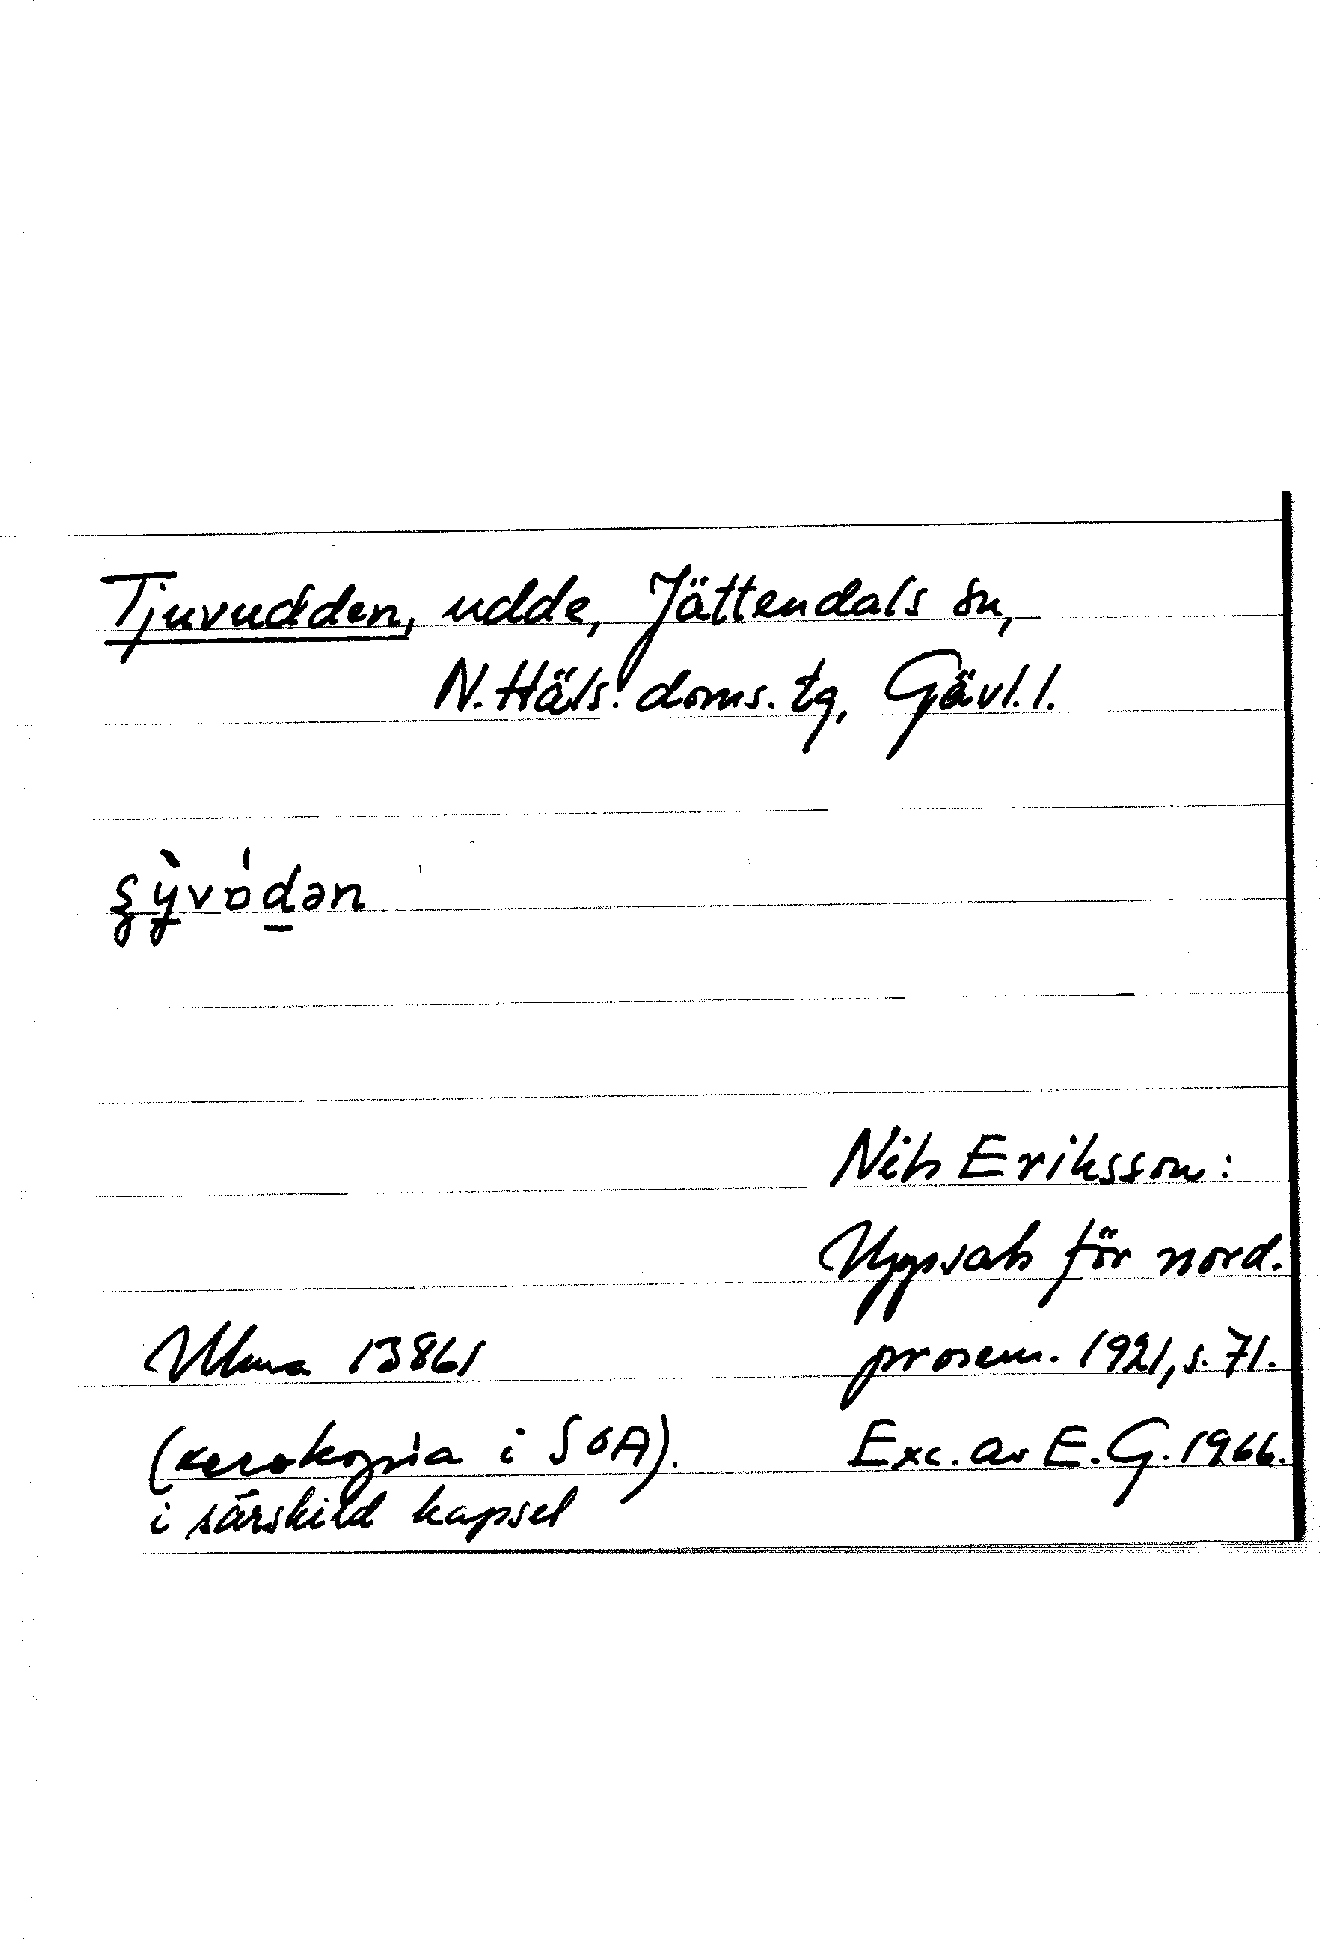 Tjuvudden, udde, Jättendals sn,
N. Häls. doms. tg, Gävl. l.
Nils Eriksson:
Uppsats för nord.
Ulma 13861 prosem. 1921, s. 71.
(xerokopia i SOA). Exc. av E. G. 1966.
i särskild kapsel